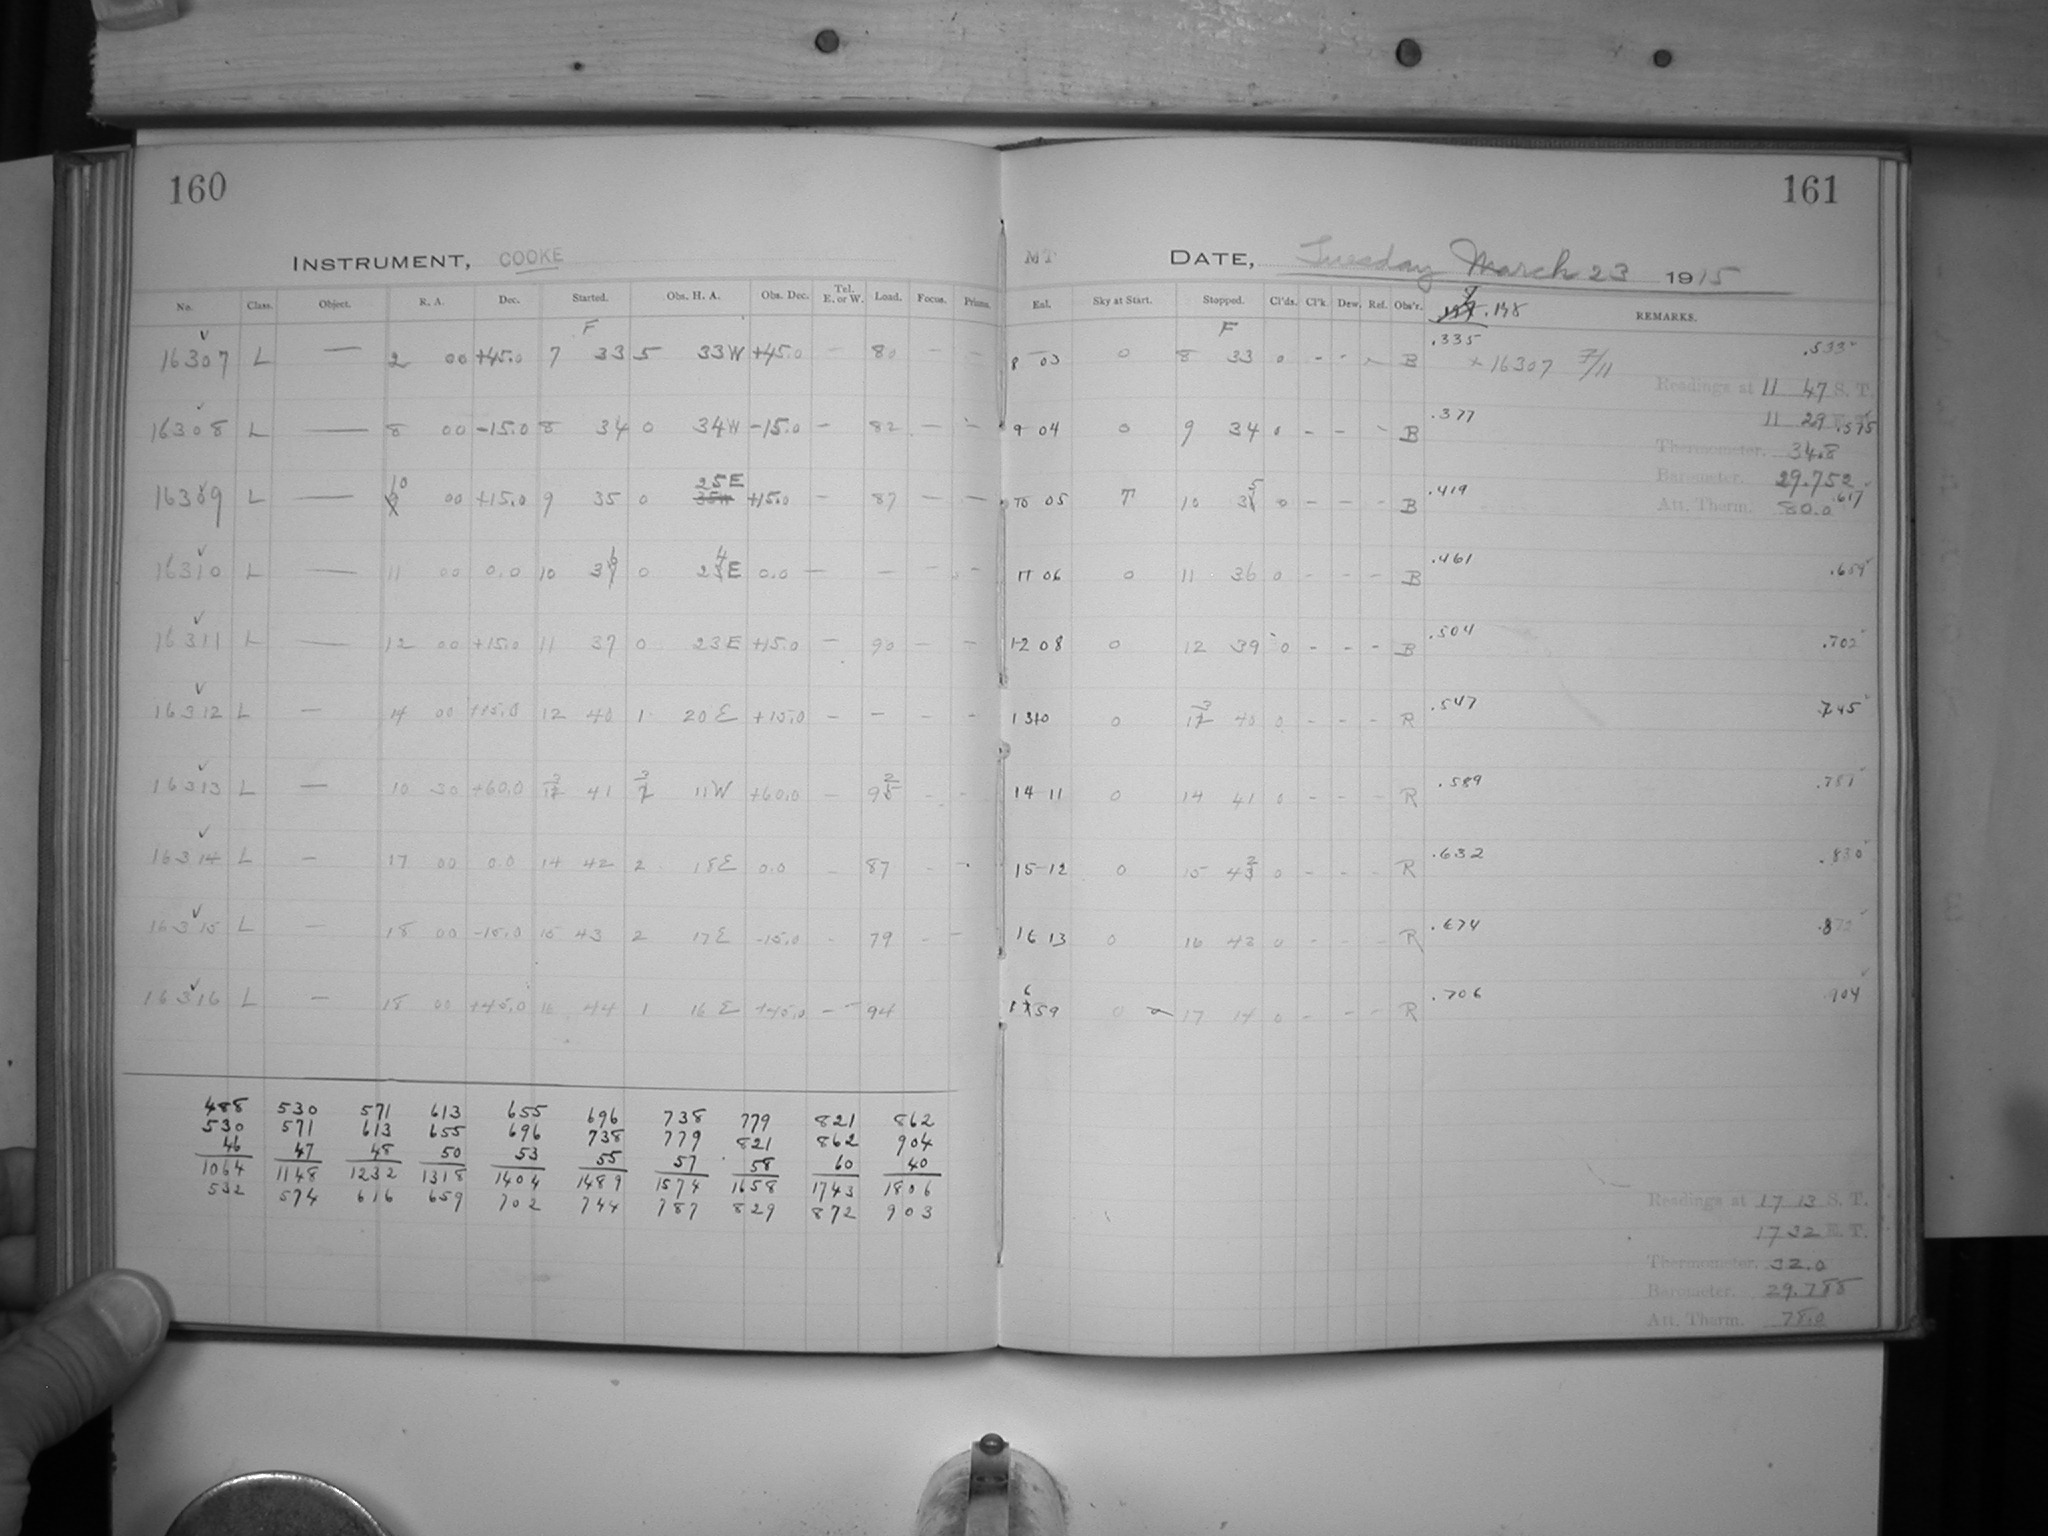 160
INSTRUMENT, COOKE
No. Class. Object. R. A. Dec. Started. Obs. H. A. Obs. Dec. Tel. E. or W. Load. Focus. Prisms.
F
16307 L — 2 00 +45.0 7 33 5 33W +45.0 — 80 — —
16308 L — 8 00 -15.0 8 34 0 34W -15.0 — 82 — —
16309 L — 10 00 +15.0 9 35 0 25E +15.0 — 87 — —
16310 L — 11 00 0.0 10 36 0 24E 0.0 — — — —
16311 L — 12 00 +15.0 11 37 0 23E +15.0 — 90 — —
16312 L — 14 00 +15.0 12 40 1 20E +15.0 — — — —
16313 L — 10 30 +60.0 13 41 3 11W +60.0 — 92 — —
16314 L — 17 00 0.0 14 42 2 18E 0.0 — 87 — —
16315 L — 18 00 -15.0 15 43 2 17E -15.0 — 79 — —
16316 L — 18 00 +45.0 16 44 1 16E +45.0 — — 94
488 530 571 613 655 696 738 779 821 862
530 571 613 655 696 738 779 821 862 904
46 47 48 50 53 55 57 58 60 40
1064 1148 1232 1318 1404 1489 1574 1658 1743 1806
532 574 616 659 702 744 787 829 872 903
161
MT DATE, Tuesday March 23 1915
Exl. Sky at Start. Stopped. Cl'ds. Cl'k. Dew. Ref. Obs'r. .198 REMARKS.
F
8 03 0 8 33 0 - - - B .335 + 16307 7/11 .533
Readings at 11 47 S. T.
11 29 E. T.
9 04 0 9 34 0 - - - B .377 .575
Thermometer. 34.8
Barometer. 29.752
10 05 T 10 35 0 - - - B .419 .617
Att. Therm. 80.0
11 06 0 11 36 0 - - - B .461 .659
12 08 0 12 39 0 - - - B .504 .702
13 10 0 13 40 0 - - - R .547 .745
14 11 0 14 41 0 - - - R .589 .787
15 12 0 15 42 0 - - - R .632 .830
16 13 0 16 43 0 - - - R .674 .872
16 59 0 17 14 0 - - - R .706 .904
Readings at 17 13 S. T.
17 32 E. T.
Thermometer. 32.0
Barometer. 29.788
Att. Therm. 78.0